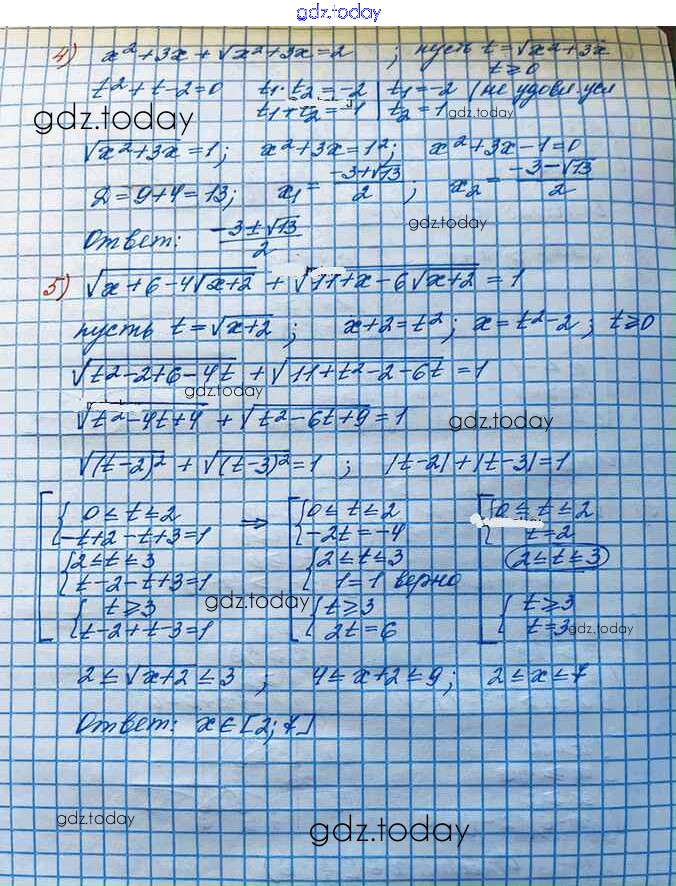 gdz.today
4) x²+3x+√x²+3x=2 ; пусть t=√x²+3x
t≥0
t²+t-2=0 t₁·t₂=-2 | t₁=-2 (не удовл. усл
t₁+t₂=-1 | t₂=1 gdz.today
gdz.today
√x²+3x=1; x²+3x=1²; x²+3x-1=0
D=9+4=13; x₁=(-3+√13)/2 ; x₂=(-3-√13)/2
gdz.today
Ответ: (-3±√13)/2
5) √x+6-4√x+2 + √11+x-6√x+2 =1
пусть t=√x+2 ; x+2=t²; x=t²-2 ; t≥0
√t²-2+6-4t + √11+t²-2-6t =1
gdz.today
√t²-4t+4 + √t²-6t+9=1
gdz.today
√(t-2)² + √(t-3)²=1 ; |t-2|+|t-3|=1
0≤t≤2 ⇒ 0≤t≤2 0≤t≤2
-t+2-t+3=1 -2t=-4 t=2
2≤t≤3 2≤t≤3 2≤t≤3
t-2-t+3=1 1=1 верно
gdz.today
t≥3 t≥3 t≥3
t-2+t-3=1 2t=6 t=3
gdz.today
2≤√x+2≤3 ; 4≤x+2≤9; 2≤x≤7
Ответ: x∈[2;7]
gdz.today
gdz.today
gdz.today